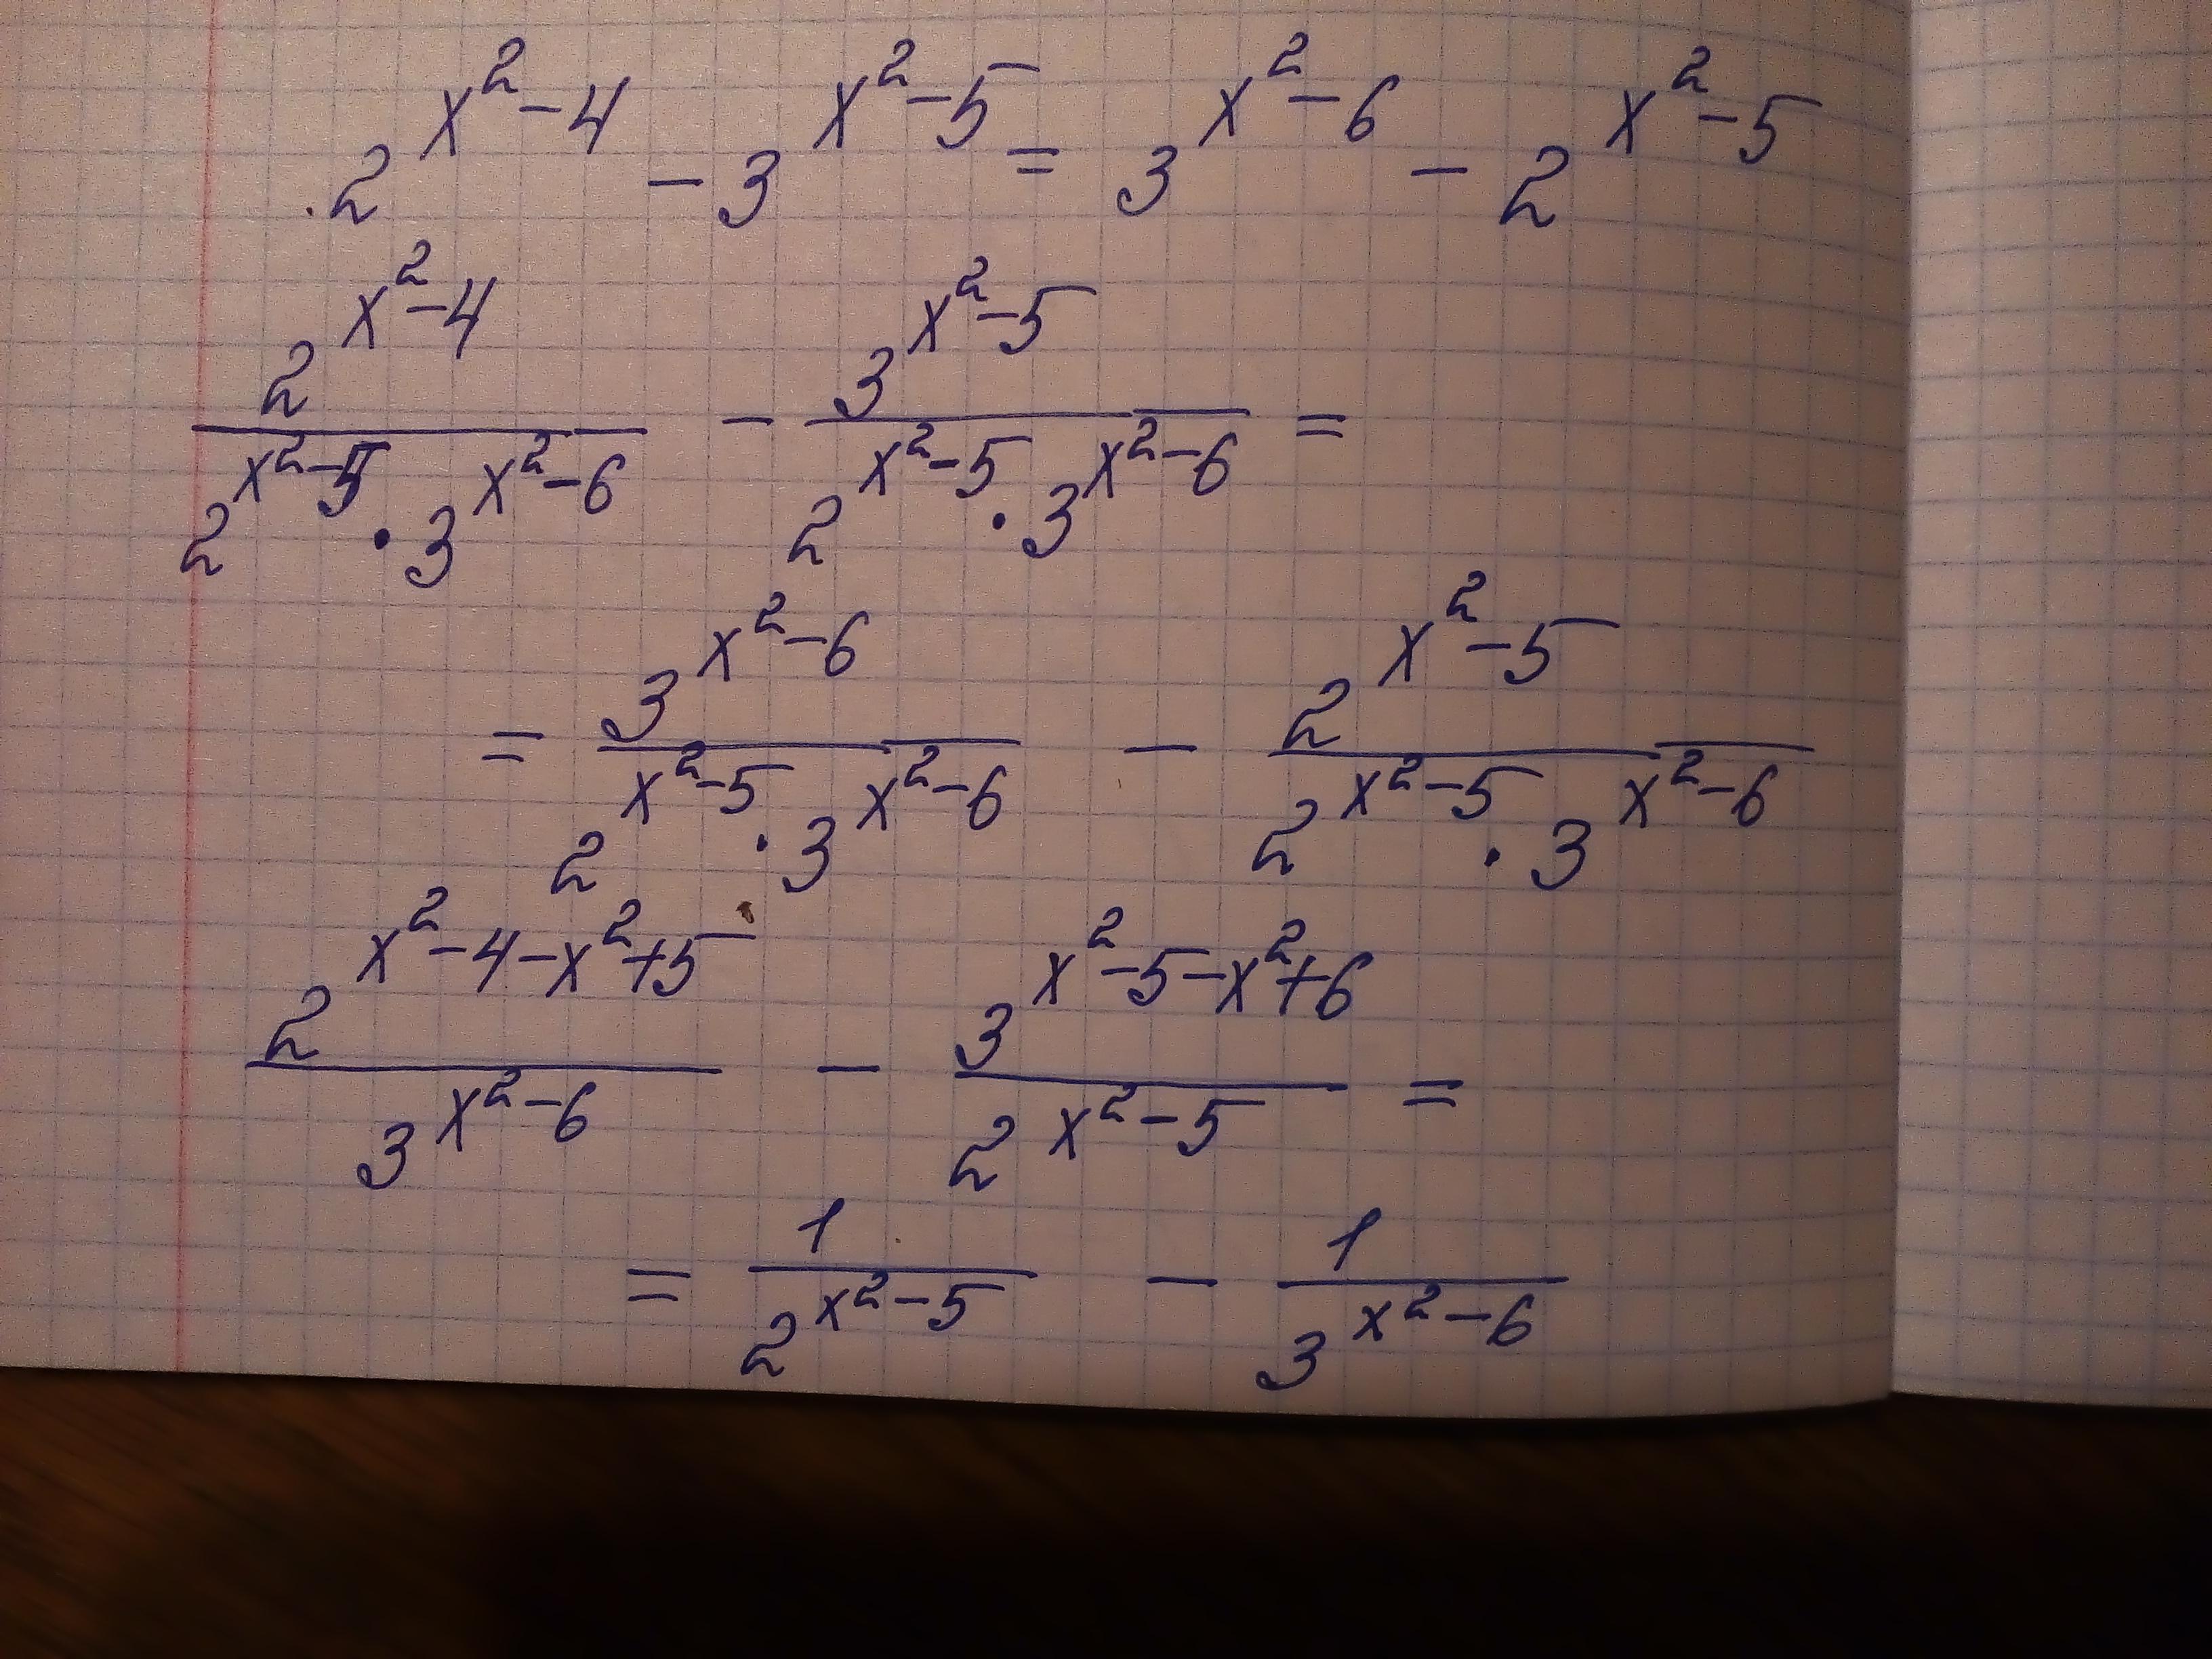 2^{x^2-4} - 3^{x^2-5} = 3^{x^2-6} - 2^{x^2-5}
\frac{2^{x^2-4}}{2^{x^2-5} \cdot 3^{x^2-6}} - \frac{3^{x^2-5}}{2^{x^2-5} \cdot 3^{x^2-6}} =
= \frac{3^{x^2-6}}{2^{x^2-5} \cdot 3^{x^2-6}} - \frac{2^{x^2-5}}{2^{x^2-5} \cdot 3^{x^2-6}}
\frac{2^{x^2-4-x^2+5}}{3^{x^2-6}} - \frac{3^{x^2-5-x^2+6}}{2^{x^2-5}} =
= \frac{1}{2^{x^2-5}} - \frac{1}{3^{x^2-6}}